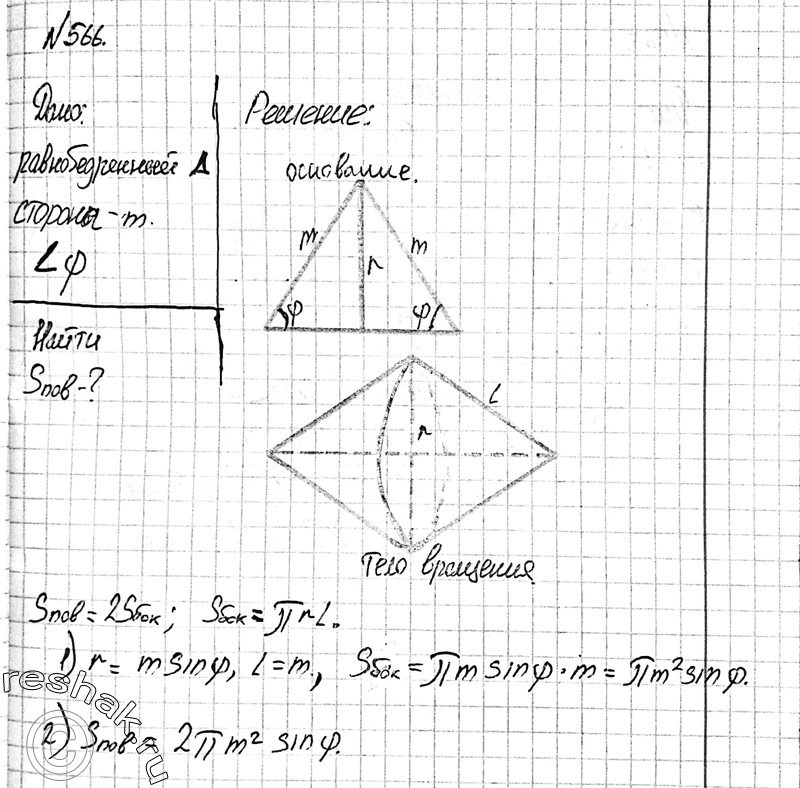 №566.
Дано:
равнобедренный Δ
стороны - m.
∠φ
Найти
Sпов - ?
Решение:
основание.
m m
r
φ φ
L
r
Тело вращения
Sпов = 2Sбок; Sбок = πrL.
1) r = m sinφ, L = m, Sбок = πm sinφ · m = πm² sinφ.
2) Sпов = 2πm² sinφ.
reshak.ru